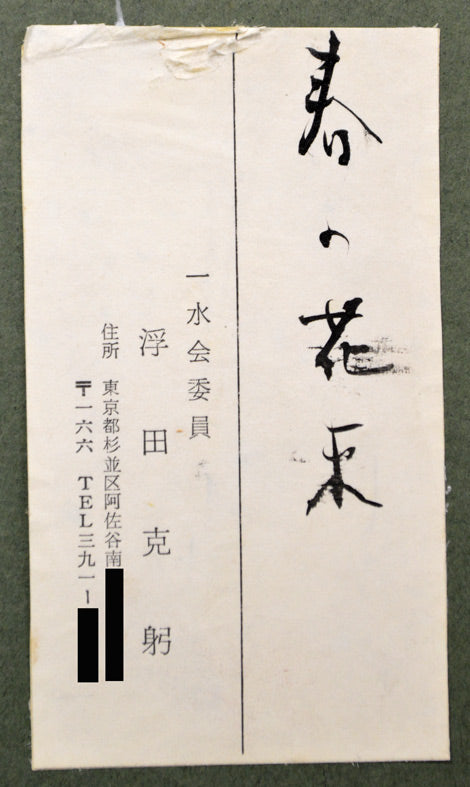 春の花束
一水会委員
浮田克躬
住所 東京都杉並区阿佐谷南
〒一六六 TEL三九一ー